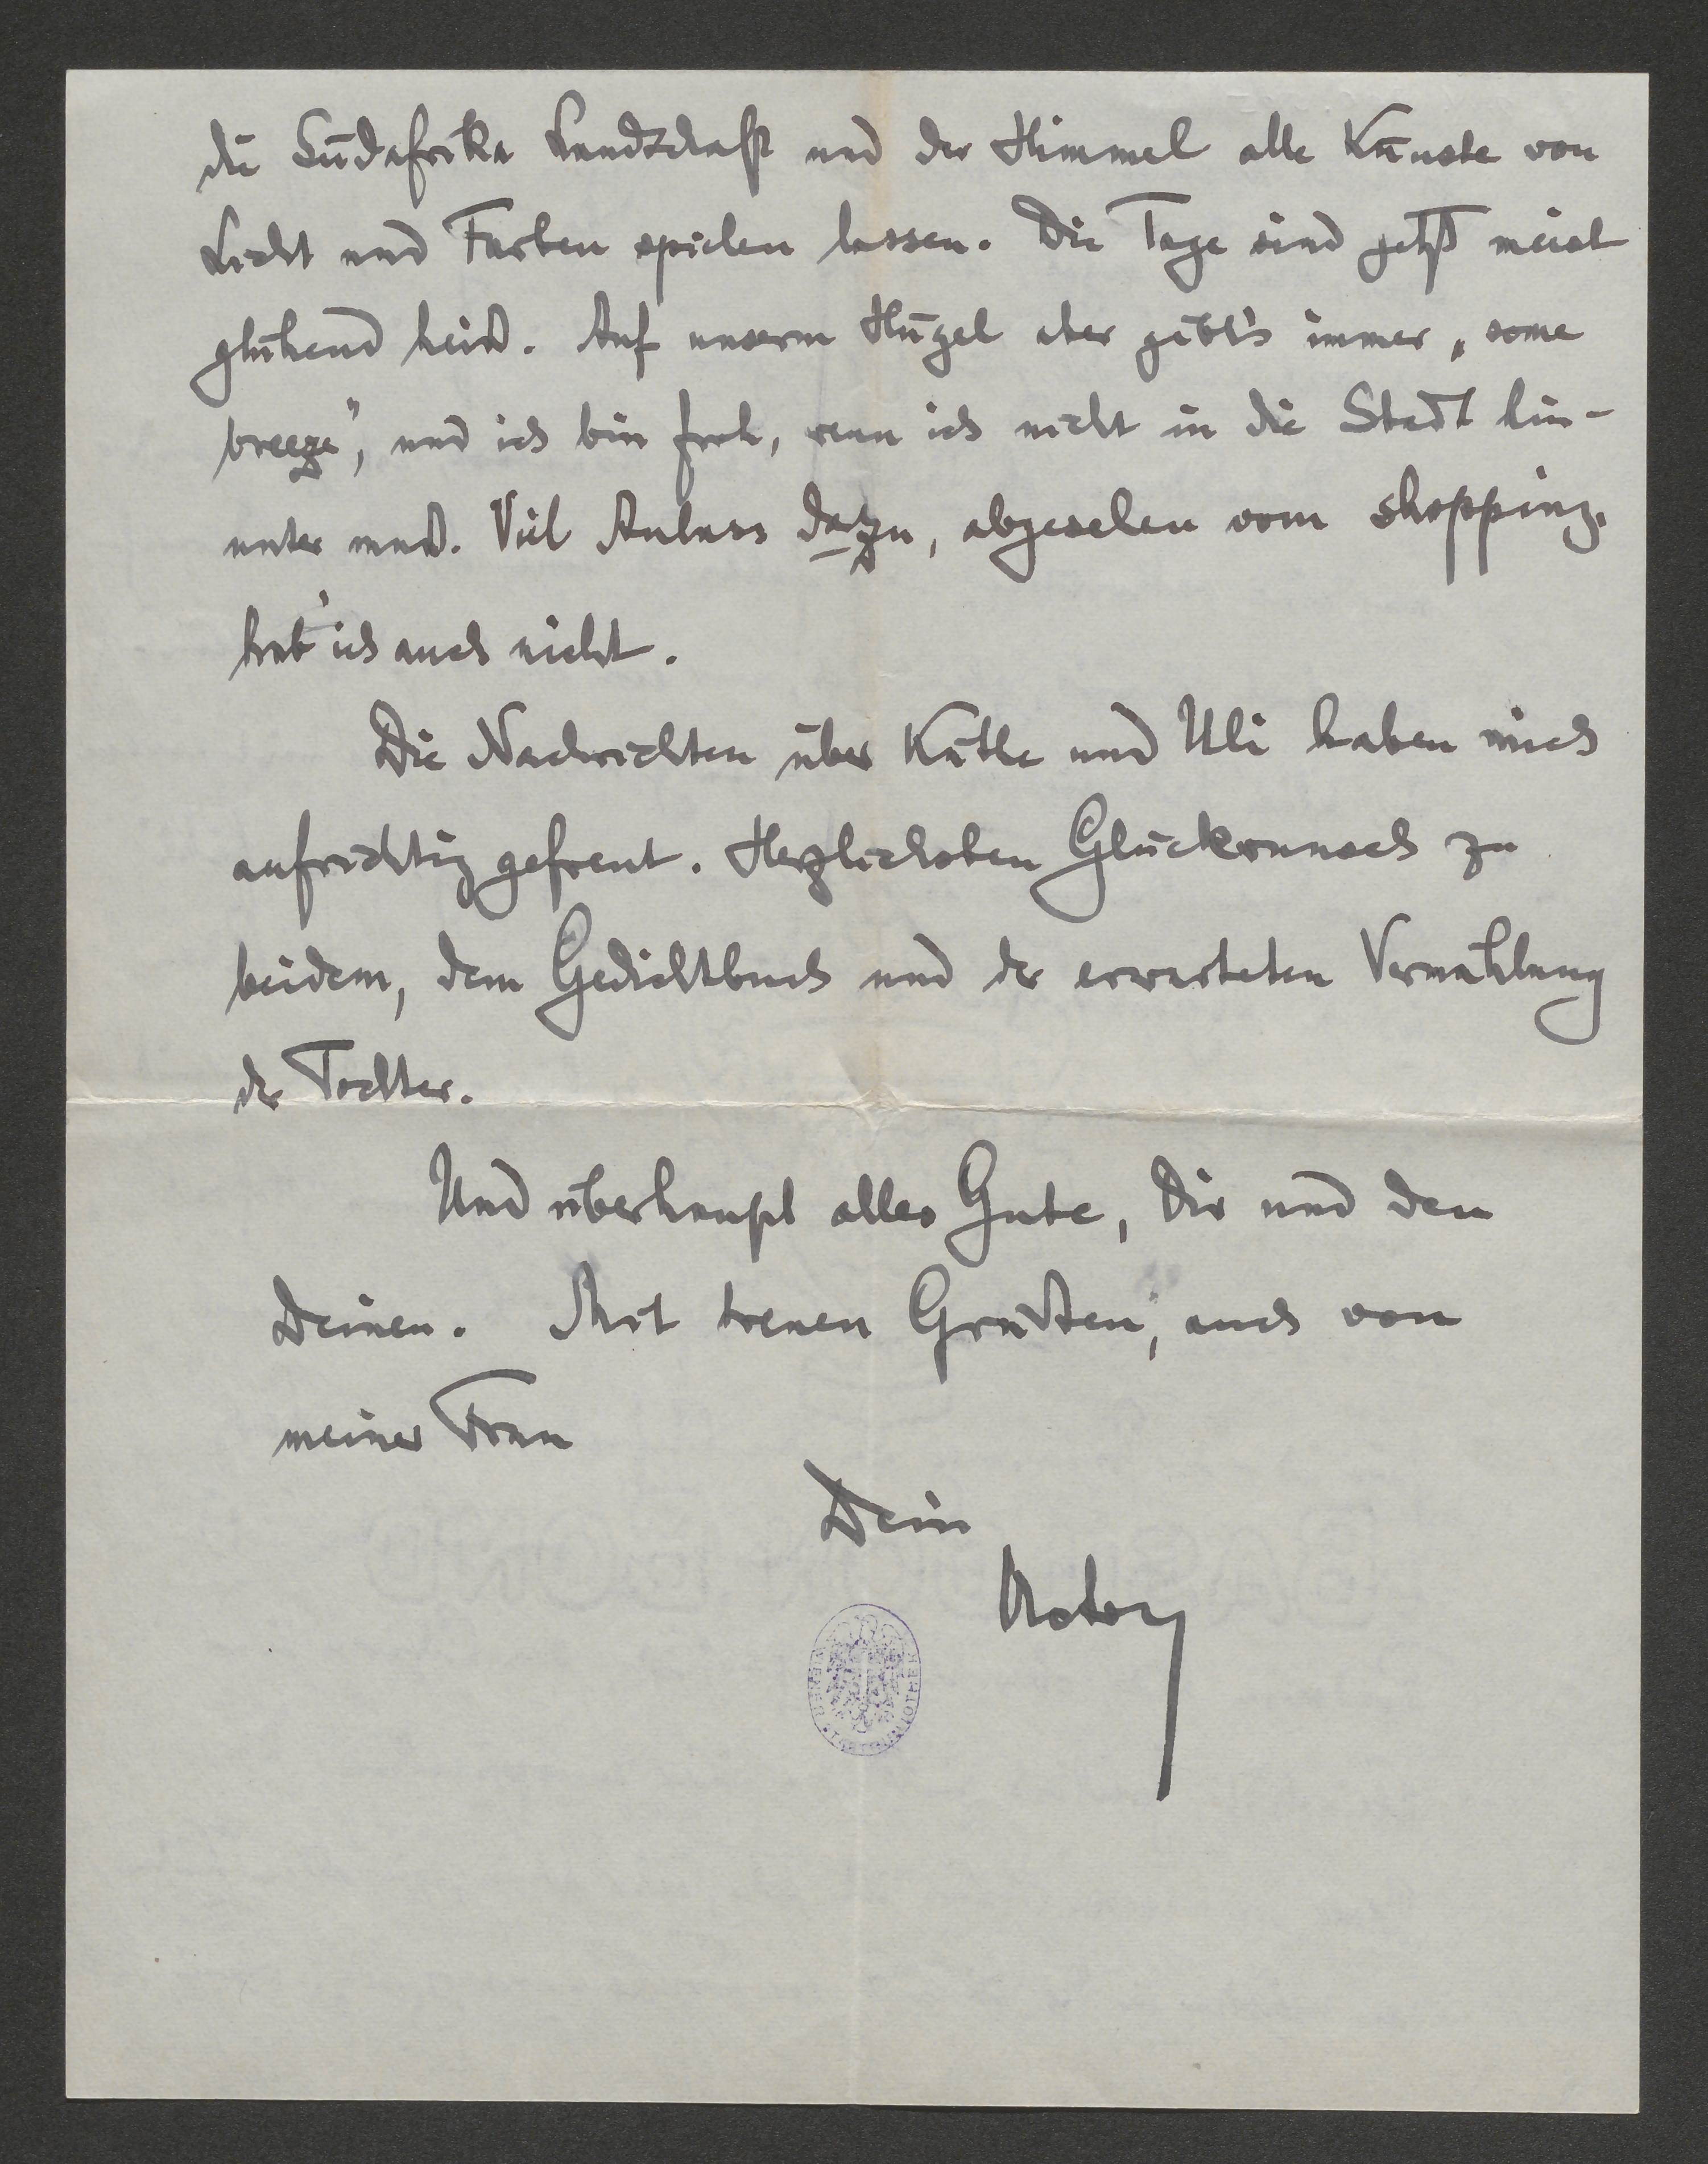 die Südafrika Landschaft und der Himmel alle Künste von
Licht und Farben spielen lassen. Die Tage sind jetzt meist
glühend heiß. Auf unserm Hügel aber gibt's immer „some
breeze", und ich bin froh, wenn ich nicht in die Stadt hin-
unter muß. Viel Anlass dazu, abgesehen vom shopping,
hab' ich auch nicht.
Die Nachrichten über Käthe und Uli haben mich
aufrichtig gefreut. Herzlichsten Glückwunsch zu
beidem, dem Gedichtbuch und der erwarteten Vermählung
der Tochter.
Und überhaupt alles Gute, Dir und den
Deinen. Mit treuen Grüßen, auch von
meiner Frau
Dein